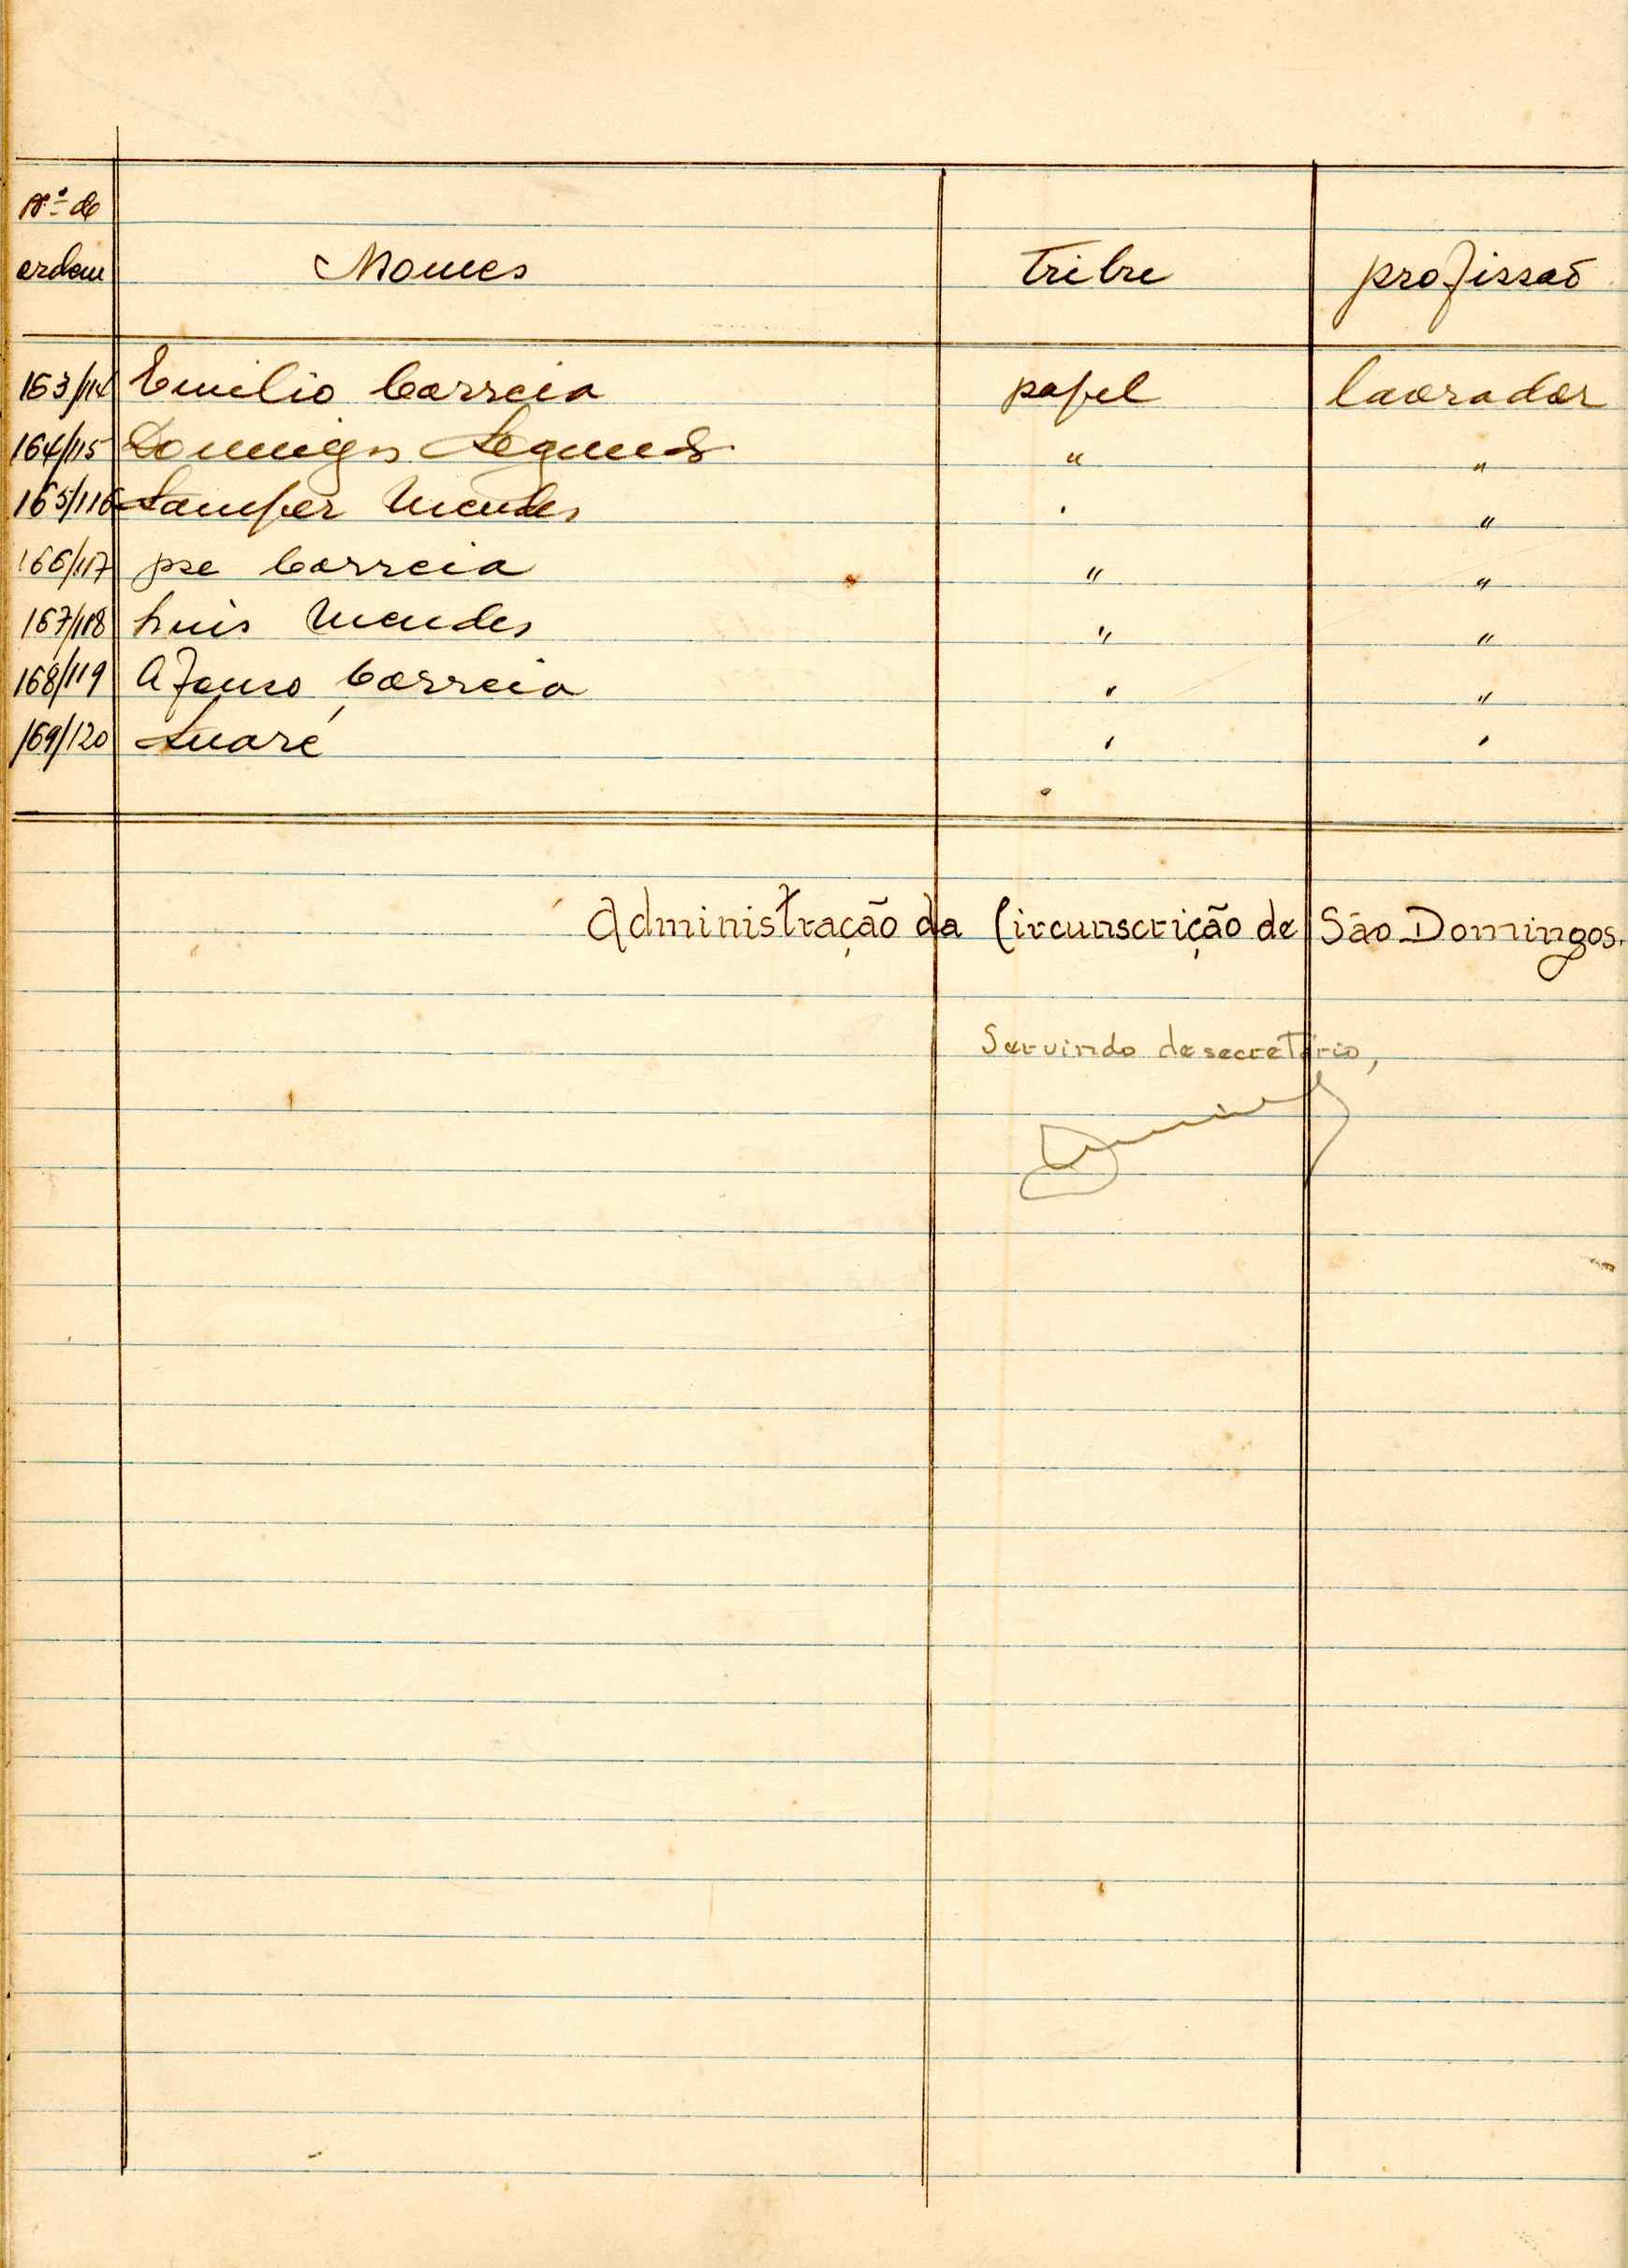 Nº de
ordem Nomes Tribu profissaõ
163/114 Emilio Correia papel lavrador
164/115 Domingos " "
165/116 Samper Mendes " "
166/117 José Correia " "
167/118 Luis Mendes " "
168/119 Afonso Correia " "
169/120 " "
Administração da Circunscrição de São Domingos.
Servindo de secretário,